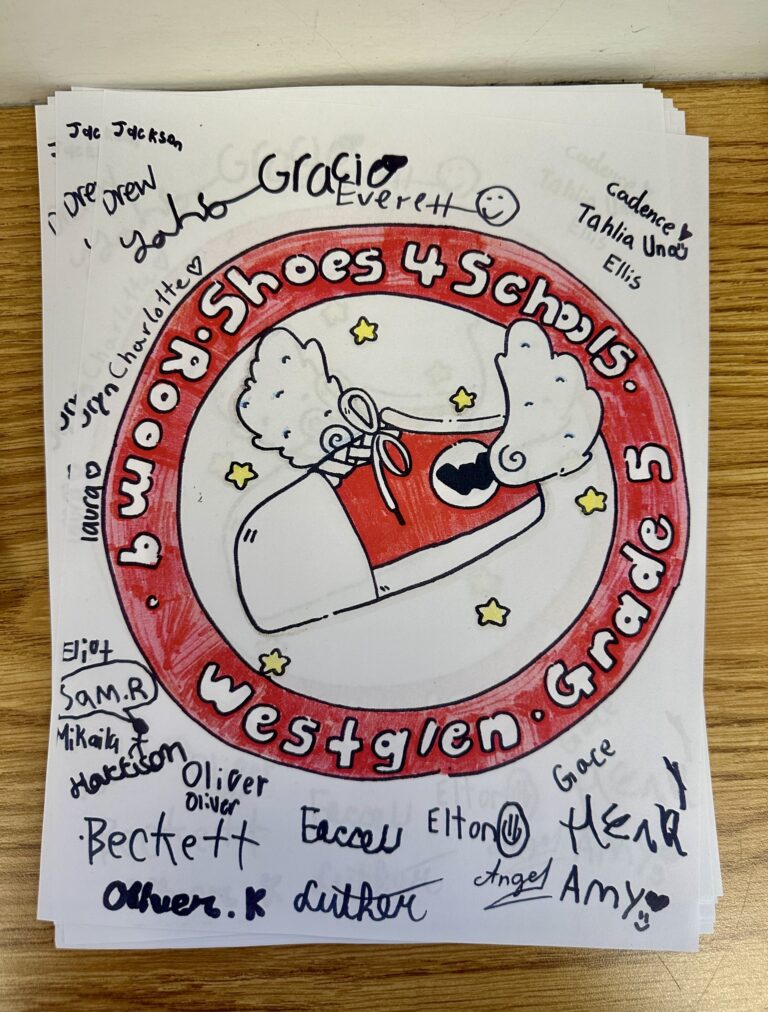 Jackson
Drew
Gracio
Everett
Cadence
Tahlia Una
Ellis
Charlotte
laura
Shoes 4 Schools.
Grade 5
Westglen.
Room 9
Eliot
Sam.R
Mikaila
Harrison
Oliver
Oliver
Grace
Beckett
Elton
Henry
Oliver.K
Luther
Angel
Amy